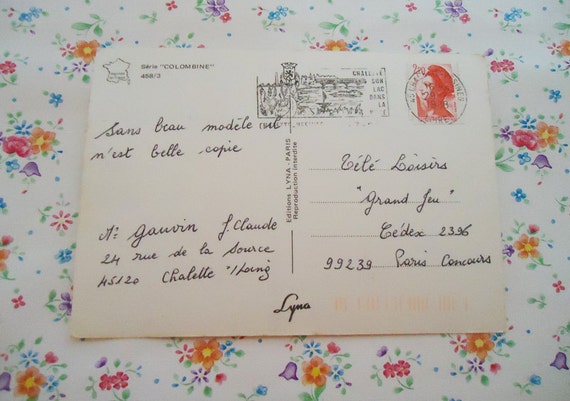 Série "COLOMBINE"
458/3
CHALETTE
SON
LAC
DANS
LA
2,20
Sans beau modèle nul
n'est belle copie
A: Gauvin J. Claude
24 rue de la Source
45120 Chalette s/Loing
Editions LYNA - PARIS
Reproduction interdite
Télé Loisirs
"Grand Jeu"
Cédex 2396
99239 Paris Concours
Lyna